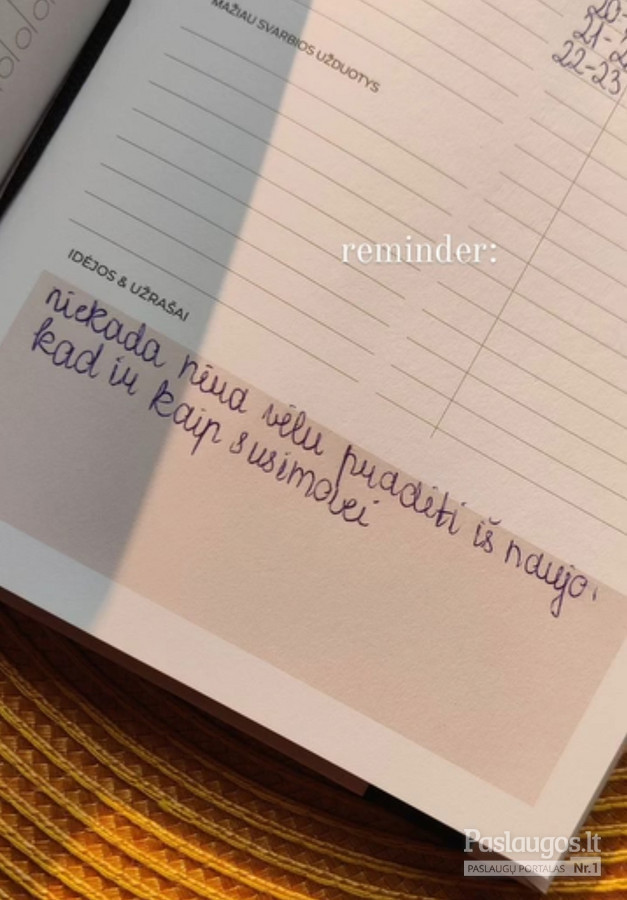 MAŽIAU SVARBIOS UŽDUOTYS
22-23
reminder:
IDĖJOS & UŽRAŠAI
niekada nėra vėlu pradėti iš naujo,
kad ir kaip susimovei
Paslaugos.lt
PASLAUGŲ PORTALAS Nr.1